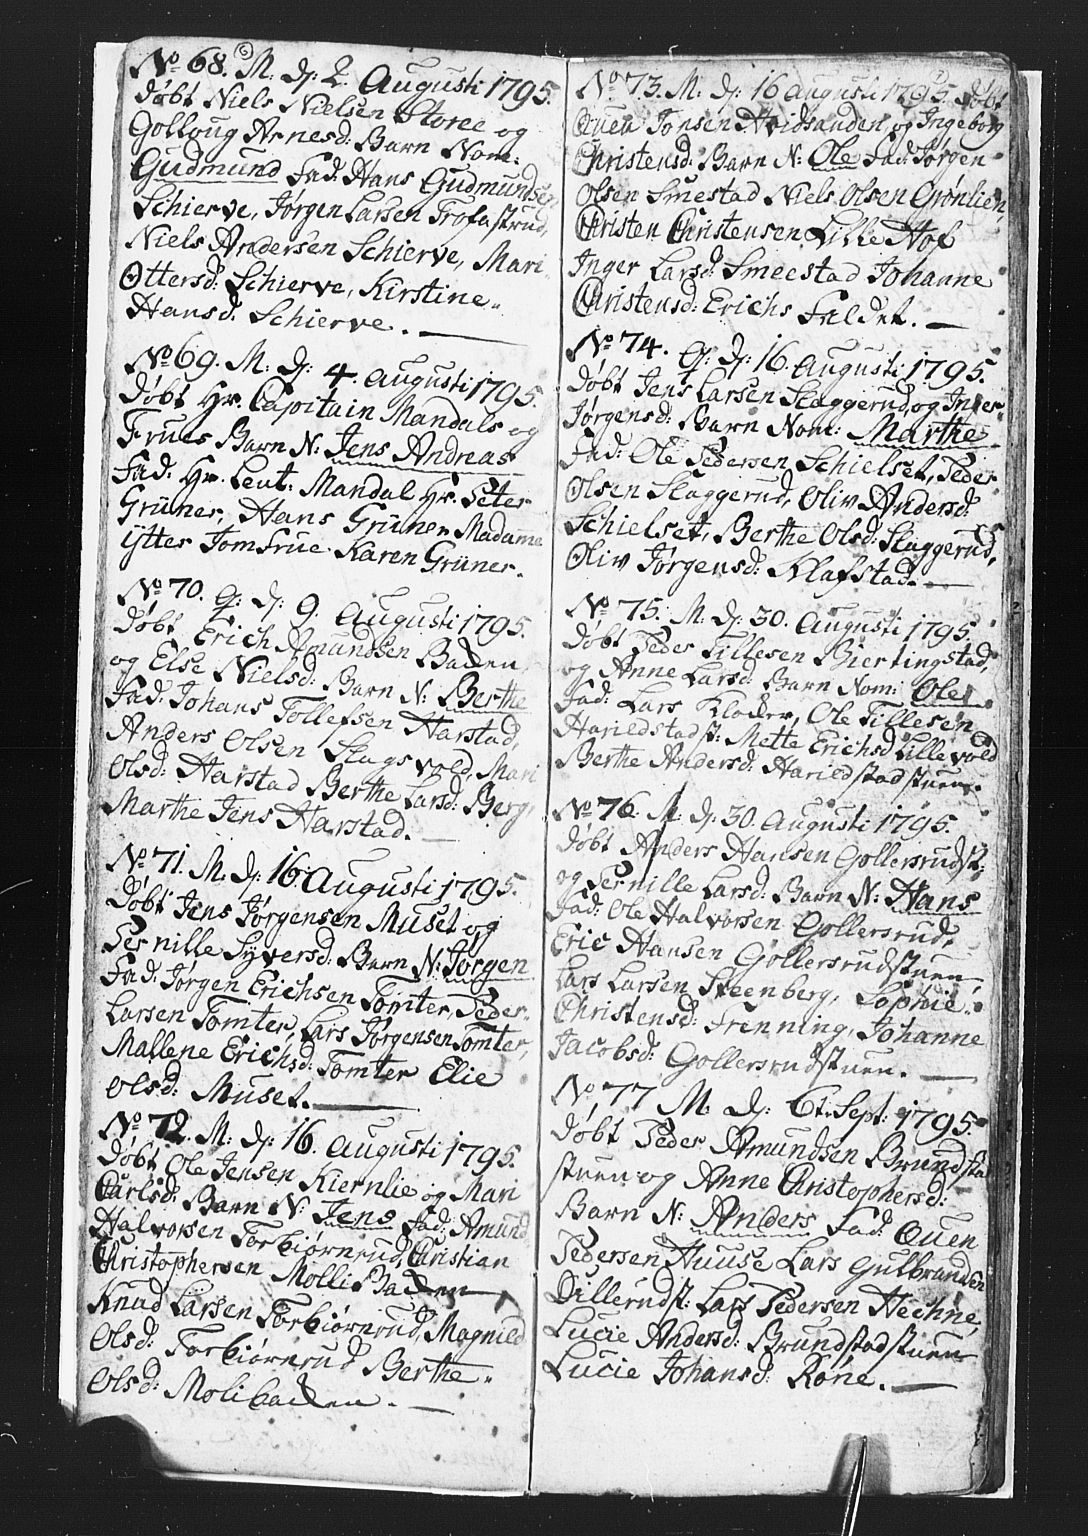 No 68. M. d: 2 Augusti 1795.
döbt Niels Nielsen Storee og
Golloug Arnesd: Barn Nom:
Gudmund Fad: Hans Gudmundsen
Schierve, Jörgen Larsen Trofastrud,
Niels Andersen Schierve, Mari
Ottersd: Schierve, Kirstine
Hansd: Schierve.
No 69. M. d: 4. Augusti 1795.
döbt Hr. Capitain Mandals og
Frues Barn N: Jens Andreas
Fad: Hr. Leut: Mandal Hr. Peter
Grüner, Hans Grüner Madame
ÿtter Jomfrue Karen Grüner.
No 70. Q: d: 9. Augusti 1795.
döbt Erich Amundsen Baden,
og Else Nielsd: Barn N: Berthe
Fad: Johans Tollefsen Harstad,
Anders Olsen Slagsvold, Mari
Olsd: Harstad Berthe Larsd: Berg,
Marthe Jens Harstad.
No 71. M. d: 16 Augusti 1795.
döbt Jens Jörgensen Muset og
Pernille Syversd: Barn N: Jörgen
Fad: Jörgen Erichsen Tomter, Peder
Larsen Tomter, Lars Jörgensen Tomter,
Mallene Erichsd: Tomter Elie
Olsd: Muset.
No 72. M: d: 16. Augusti 1795.
döbt Ole Jensen Kiernlie og Mari
Carlsd: Barn N: Jens Fad: Amund
Halvorsen Torbiörnrud, Christian
Christophersen Molli Baden
Knud Larsen Torbiörnrud, Magnild
Olsd: Torbiörnrud Berthe
Olsd: Molibaden.
No 73. M. d: 16 Augusti 1795. döbt
Ouen Jonsen Hvidsanden og Ingeborg
Christensd: Barn N: Ole Fad: Jörgen
Olsen Smestad Niels Olsen Grönlien
Christen Christensen Lille Hof
Inger Larsd: Smeestad Johanne
Christensd: Erichs Faldet.
No 74. Q: d: 16. Augusti 1795.
döbt Jens Larsen Slaggerud, og Inger
Jörgensd: Barn Nom: Marthe
Fad: Ole Pedersen Schielset, Peder
Olsen Slaggerud, Oliv Andersd:
Schielset, Berthe Olsd: Slaggerud,
Oliv Jörgensd: Klafstad.
No 75. M. d: 30. Augusti 1795.
döbt Peder Tillesen Biertingstad,
og Anne Larsd: Barn Nom: Ole
Fad: Lars Klocker, Ole Tillesen
Harildstadst: Mette Erichsd Lillevold
Berthe Andersd: Harildstadstuen.
No 76. M d: 30. Augusti 1795.
döbt Anders Hansen Gollersrudst:
og Pernille Larsd: Barn N: Hans
Fad: Ole Halvorsen Gollersrud,
Eric Hansen Gollersrudstuen
Lars Larsen Steenberg, Sophie
Christensd: Frenning, Johanne
Jacobsd: Gollersrudstuen.
No 77 M. d: 6t. Sept: 1795.
döbt Peder Amundsen Brundsta
stuen og Anne Christophersd:
Barn N: Anders Fad: Ouen
Pedersen Huuse Lars Gulbrandsen
Dillerudst: Lars Pedersen Hechne
Lucie Andersd: Brundstadstuen
Lucie Johansd: Röne.